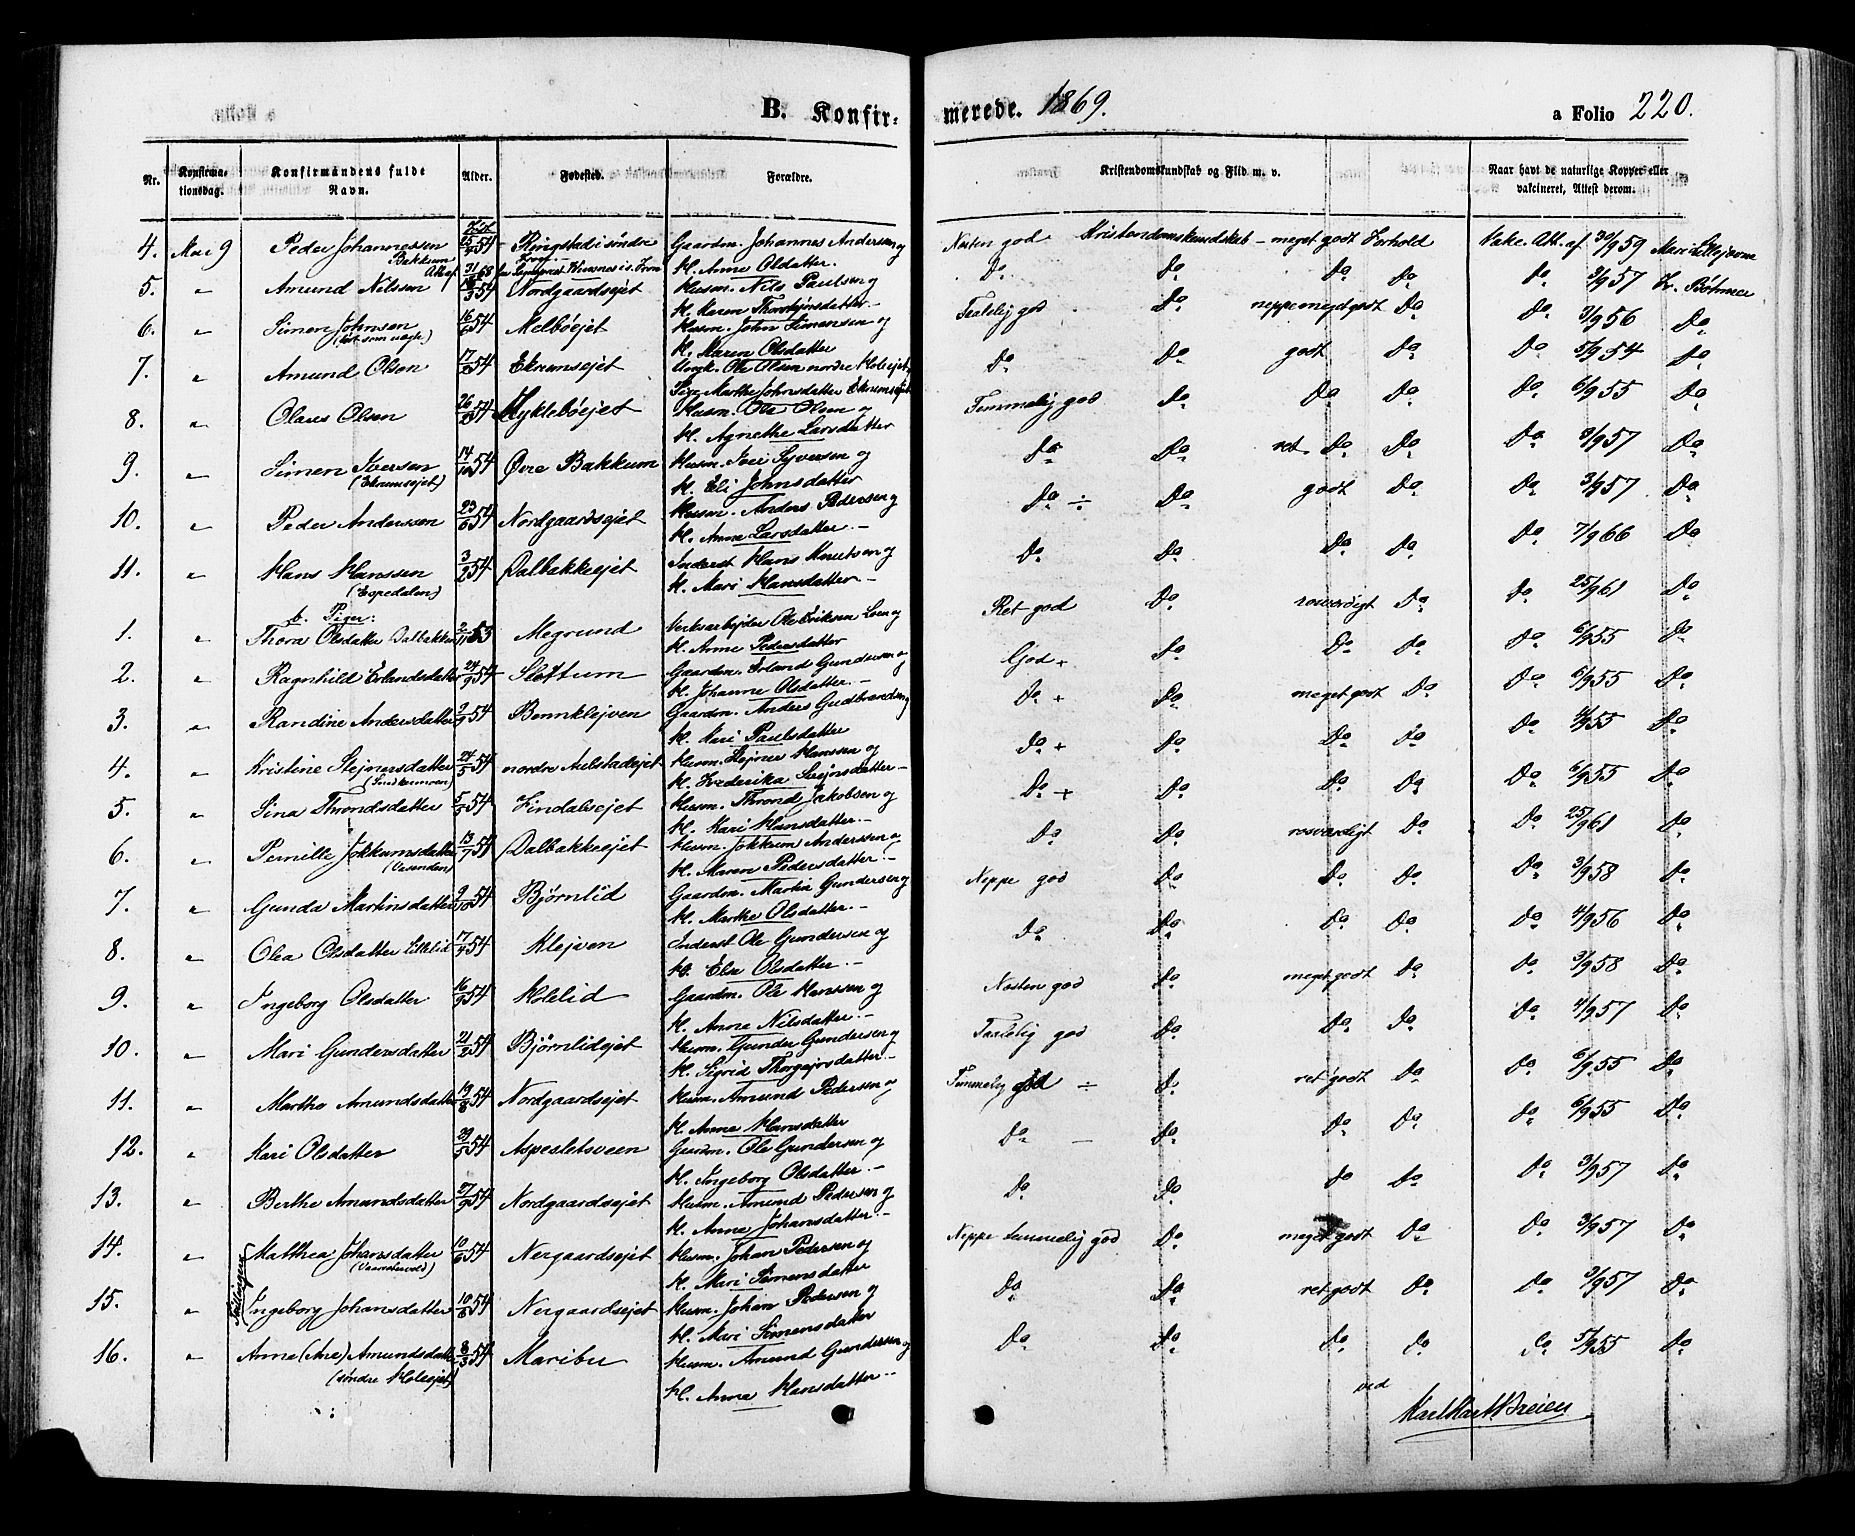 B. Konfirmerede. 1869. a Folio 220.
Nr. Konfirmationsdag. Konfirmandens fulde Navn. Alder. Fødested. Forældre. Kristendomskundskab og Flid m. v. Naar havt de naturlige Kopper eller vakcineret, Attest derom.
4. Mai 9 Peder Johannessen 54 Ringstad i søndre Gaardm. Johannes Andersen og Næsten god Kristendomskundskab - meget godt Forhold Vakc. Att. af 59
Bakkum K. Anne Olsdatter.
5. " Amund Nilssen 54 Nordgaardsejet Husm. Nils Paulsen og Do Do Do Do Do 3/9 57
K. Karen
6. " Simen Johnsen 16/6 54 Melbøejet Husm. John Simensen og god Do neppe meget godt Do Do 3/9 56 Do
K. Maren Olsdatter
7. " Amund Olsen 54 Ekrumsejet Ungk. Ole Olsen nordre Kolsejet, Do Do godt Do Do 5/9 54 Do
Pige Marthe Johnsdatter Ekrumsejet
8. " Olaus Olsen 54 Myklebøejet Husm. Ole Olsen og Temmelig god Do Do Do Do 6/9 55 Do
K. Agnethe Larsdatter
9. " Simen Iversen 14/10 54 Øvre Bakkum Husm. Iver Syversen og Do Do ret Do Do Do 3/9 57 Do
(Ekrumsejet) K. Eli Johnsdatter
10. " Peder Anderssen 23/6 54 Nordgaardsejet Husm. Anders Pedersen og Do ÷ Do godt Do Do 3/9 57 Do
K. Anne Larsdatter.-
11. " Hans Hanssen 3/2 54 Dalbakkeejet Inderst Hans Knutsen og Do Do Do Do Do 7/9 66 Do
(Espedalen) K. Mari Hansdatter.-
b. Piger:
1. " Thora Olsdatter Dalbakken 53 Megrund Verksarbejder Ole Eriksen Loen og Ret god Do rosværdigt Do Do 25/9 61 Do
K. Anne Pedersdatter
2. " Ragnhild Erlandsdatter 54 Slottum Gaardm. Erland Gundersen og God + Do Do Do Do 6/9 55 Do
K. Johanne Olsdatter.-
3. " Randine Andersdatter 54 Bonnklejven Gaardm. Anders Gudbrandsen og Do + Do meget godt Do Do 6/9 55 Do
K. Kari Paulsdatter
4. " Kristine Stejnersdatter 24/5 54 nordre Aulstadsejet Husm. Stejner Hanssen og Do + Do Do Do Do 4/9 55 Do
K. Frederika
5. " Sina Throndsdatter 54 Lindalsejet Husm. Thrond Jakobsen og Do + Do Do Do Do 6/9 55 Do
K. Kari Hansdatter.-
6. " Pernille Jokkumsdatter 13/7 54 Dalbakkeejet Husm. Jokkum Anderssen og Do Do rosværdigt Do Do 25/9 61 Do
K. Maren Pedersdatter.-
7. " Gunda Martinsdatter 9/10 54 Bjørnlid Gaardm. Martin Gundersen og Neppe god Do Do Do Do 3/9 58 Do
K. Marthe Olsdatter.-
8. " Olea Olsdatter Lillelid 54 Klejven Inderst Ole Gundersen og Do Do Do Do Do 4/9 56 Do
K. Else Olsdatter.-
9. " Ingeborg Olsdatter 16/9 54 Kolelid Gaardm. Ole Hanssen og Næsten god Do meget godt Do Do 3/9 58 Do
K. Anne Nilsdatter.-
10. " Mari Gundersdatter 54 Bjørnlidejet Husm. Gunder Gundersen og god Do Do Do Do 4/9 57 Do
K. Sigrid Thorgejrsdatter.-
11. " Marthe Amundsdatter 19/8 54 Nordgaardsejet Husm. Amund Pedersen og Temmelig god ÷ Do ret godt Do Do 6/9 55 Do
K. Anne Hansdatter
12. " Kari Olsdatter 54 Aspesletsveen Gaardm. Ole Gundersen og Do - Do Do Do Do 6/9 55 Do
K. Ingeborg Olsdatter.-
13. " Berthe Amundsdatter 27/9 54 Nordgaardsejet Husm. Amund Pedersen og Do Do Do Do Do 3/9 57 Do
K. Anne Johansdatter.-
14. " Matthea Johansdatter 10/6 54 Nergaardsejet Husm. Johan Pedersen og Neppe temmelig god Do meget godt Do Do 3/9 57 Do
K. Mari Simensdatter
Tvillinger
15. " Ingeborg Johansdatter 10/6 54 Nergaardsejet Husm. Johan Pedersen og Do Do ret godt Do Do 3/9 57 Do
K. Mari Simensdatter
16. " Anne (Ane) Amundsdatter 8/3 54 Maribu Husm. Amund Gundersen og Do Do Do Do Do 5/9 55 Do
(søndre Kolsejet) K. Anne Hansdatter.-
ved